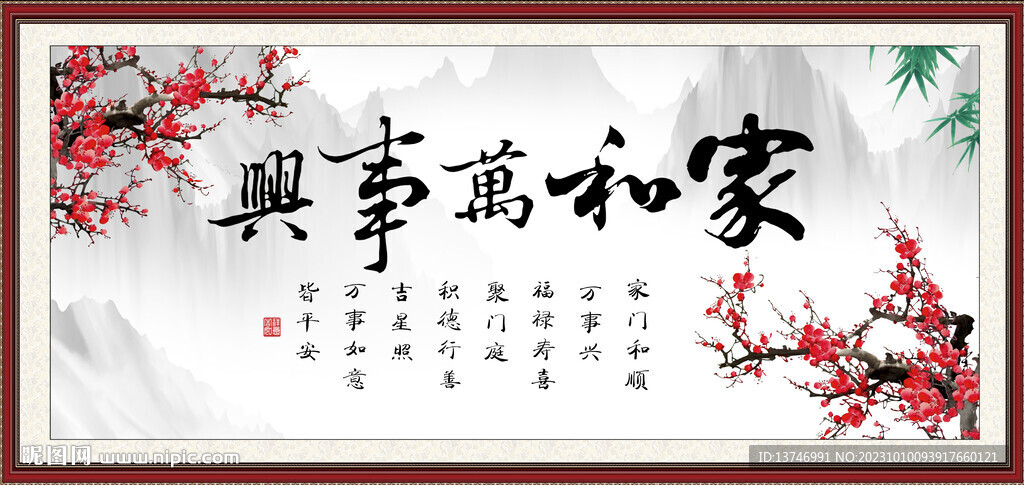 家和萬事興
家门和顺
万事兴
福禄寿喜
聚门庭
积德行善
吉星照
万事如意
皆平安
昵图网 www.nipic.com
ID:13746991 NO:20231010093917660121